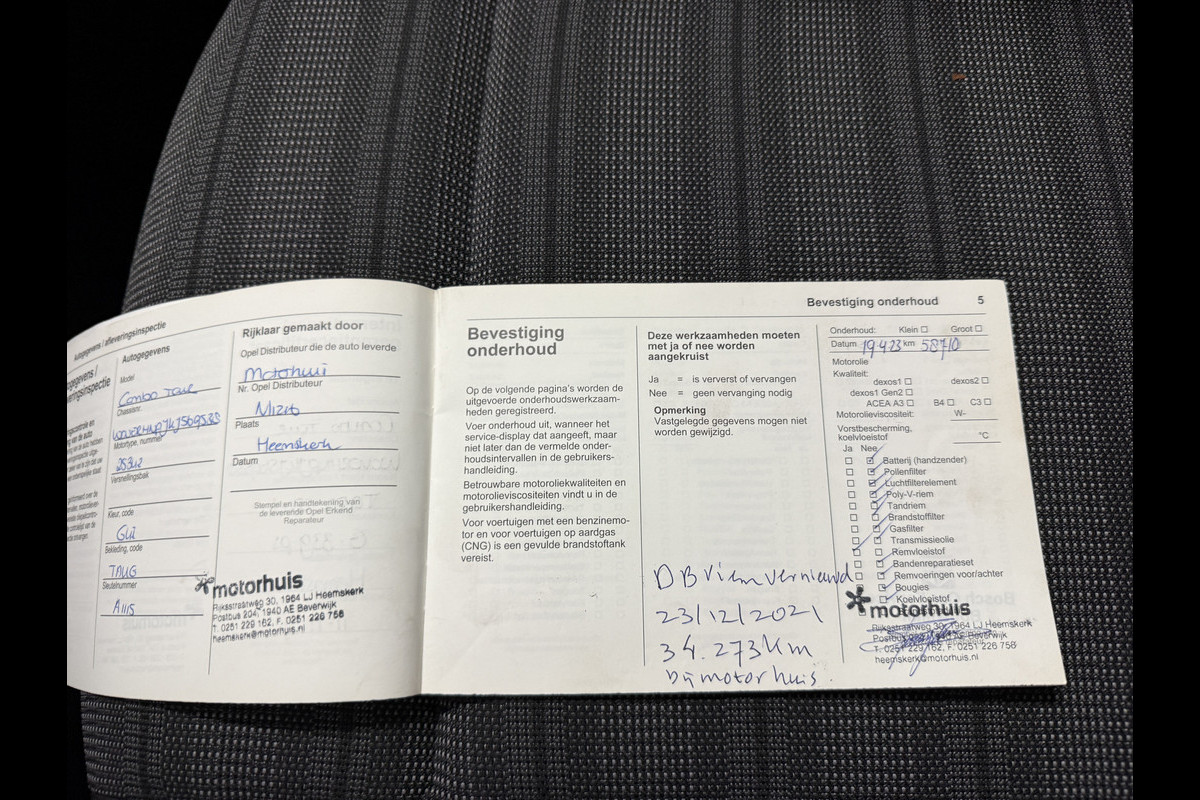 Autogegevens / afleveringsinspectie
Autogegevens
Model
Combo Tour
Chassisnr.
Motortype, nummer
Versnellingsbak
Kleur, code
Bekleding, code
TAUG
Sleutelnummer
A1115
Rijklaar gemaakt door
Opel Distributeur die de auto leverde
Motorhuis
Nr. Opel Distributeur
Plaats
Heemskerk
Datum
Stempel en handtekening van
de leverende Opel Erkend
Reparateur
motorhuis
Rijksstraatweg 30, 1964 LJ Heemskerk
Postbus 204, 1940 AE Beverwijk
T. 0251 229 162, F. 0251 226 756
heemskerk@motorhuis.nl
Bevestiging onderhoud 5
Bevestiging
onderhoud
Op de volgende pagina's worden de
uitgevoerde onderhoudswerkzaam-
heden geregistreerd.
Voer onderhoud uit, wanneer het
service-display dat aangeeft, maar
niet later dan de vermelde onder-
houdsintervallen in de gebruikers-
handleiding.
Betrouwbare motoroliekwaliteiten en
motorolieviscositeiten vindt u in de
gebruikershandleiding.
Voor voertuigen met een benzinemo-
tor en voor voertuigen op aardgas
(CNG) is een gevulde brandstoftank
vereist.
Deze werkzaamheden moeten
met ja of nee worden
aangekruist
Ja = is ververst of vervangen
Nee = geen vervanging nodig
Opmerking
Vastgelegde gegevens mogen niet
worden gewijzigd.
DB riem vernieuwd
23/12/2021
34.273km
bij motorhuis.
Onderhoud: Klein Groot
Datum 19 4 23 km 58710
Motorolie
Kwaliteit:
dexos1 dexos2
dexos1 Gen2
ACEA A3 B4 C3
Motorolieviscositeit: W-
Vorstbescherming,
koelvloeistof °C
Ja Nee
Batterij (handzender)
Pollenfilter
Luchtfilterelement
Poly-V-riem
Tandriem
Brandstoffilter
Gasfilter
Transmissieolie
Remvloeistof
Bandenreparatieset
Remvoeringen voor/achter
Bougies
Koelvloeistof
motorhuis
Rijksstraatweg 30, 1964 LJ Heemskerk
Postbus 204, 1940 AE Beverwijk
T. 0251 229 162, F. 0251 226 756
heemskerk@motorhuis.nl